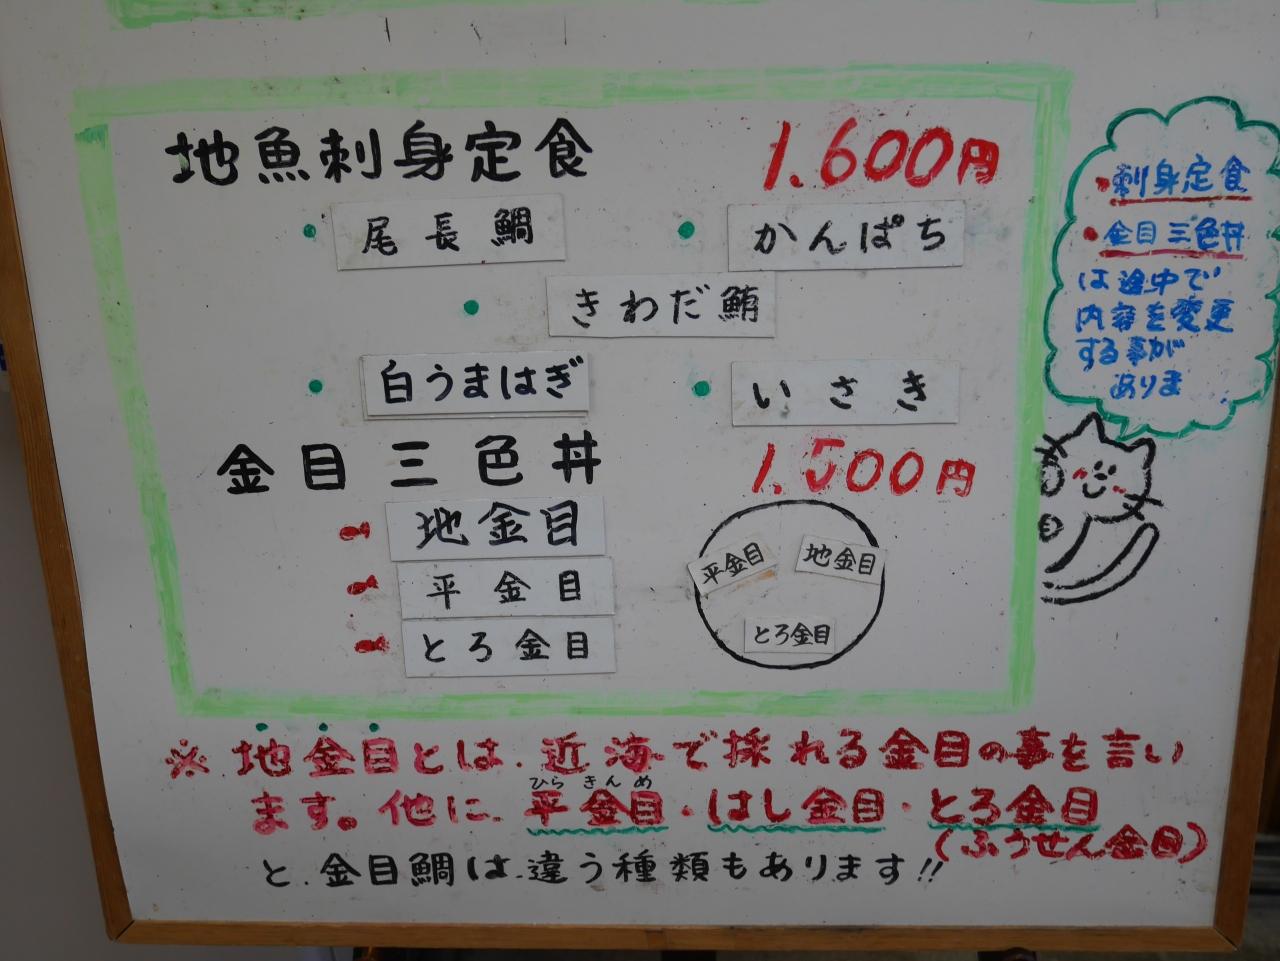 地魚刺身定食 1.600円
・尾長鯛 ・かんぱち
・きわだ鮪
・白うまはぎ ・いさき
金目三色丼 1.500円
地金目
平金目
とろ金目
平金目 地金目
とろ金目
・刺身定食
・金目三色丼
は途中で
内容を変更
する事が
ありま
※地金目とは、近海で採れる金目の事を言い
ひらきんめ
ます。他に、平金目・はし金目・とろ金目
(ふうせん金目)
と、金目鯛は、違う種類もあります!!